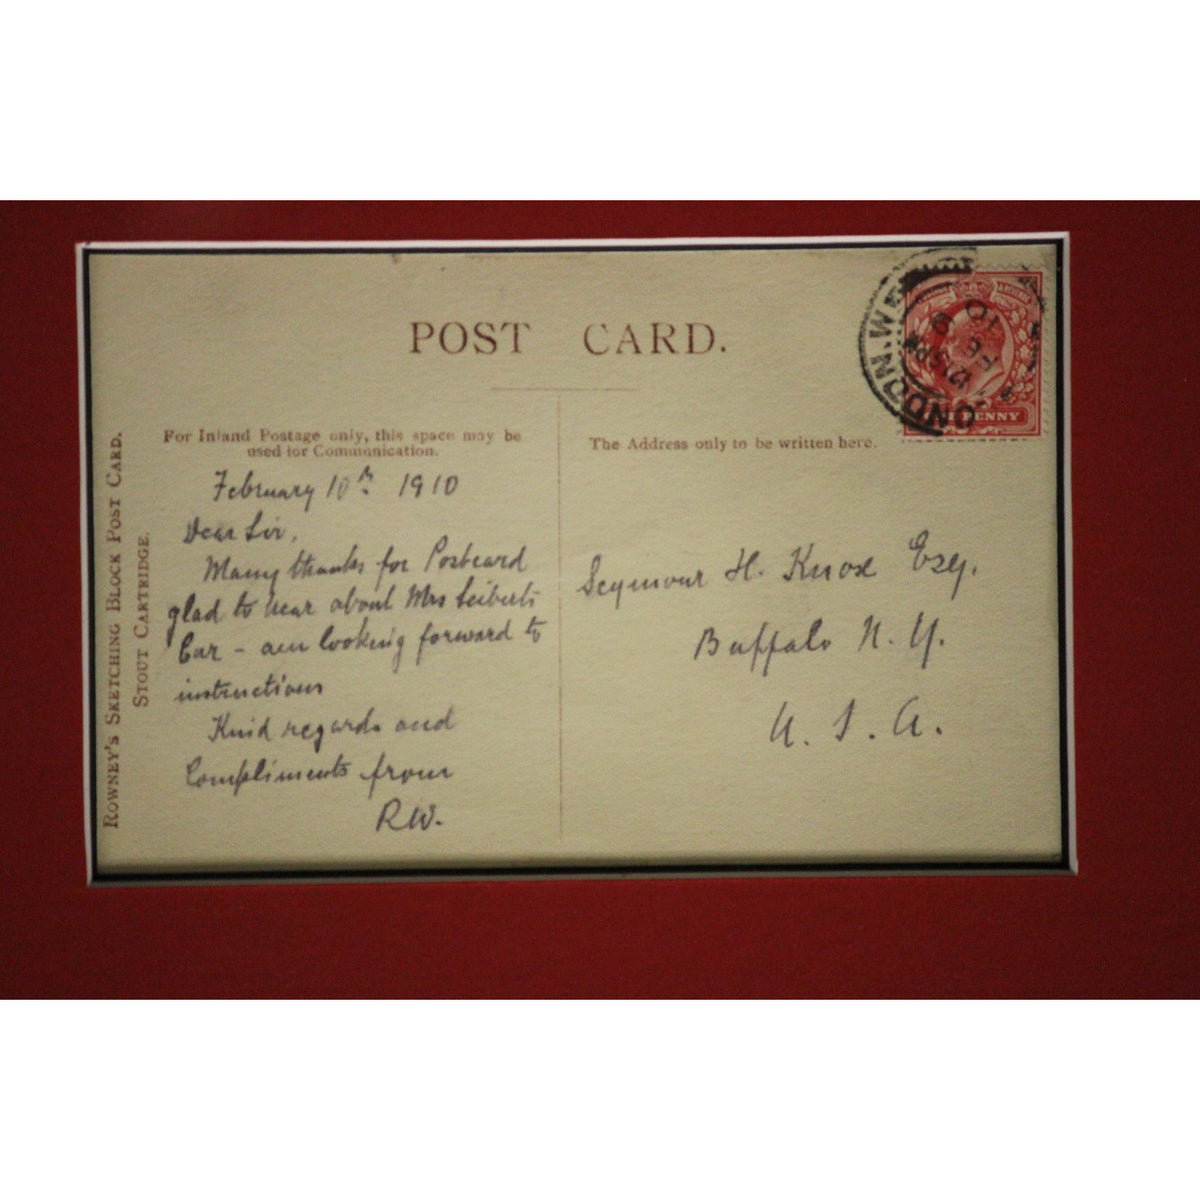 POST CARD.
For Inland Postage only, this space may be
used for Communication.
The Address only to be written here.
ROWNEY'S SKETCHING BLOCK POST CARD.
STOUT CARTRIDGE.
February 10th 1910
Dear Sir,
Many thanks for Postcard
glad to hear about Mrs Seiberts
Car - am looking forward to
instructions
Kind regards and
Compliments from
RW.
Seymour H. Knox Esq.
Buffalo N.Y.
U.S.A.
LONDON.W
12.15PM
10
PENNY